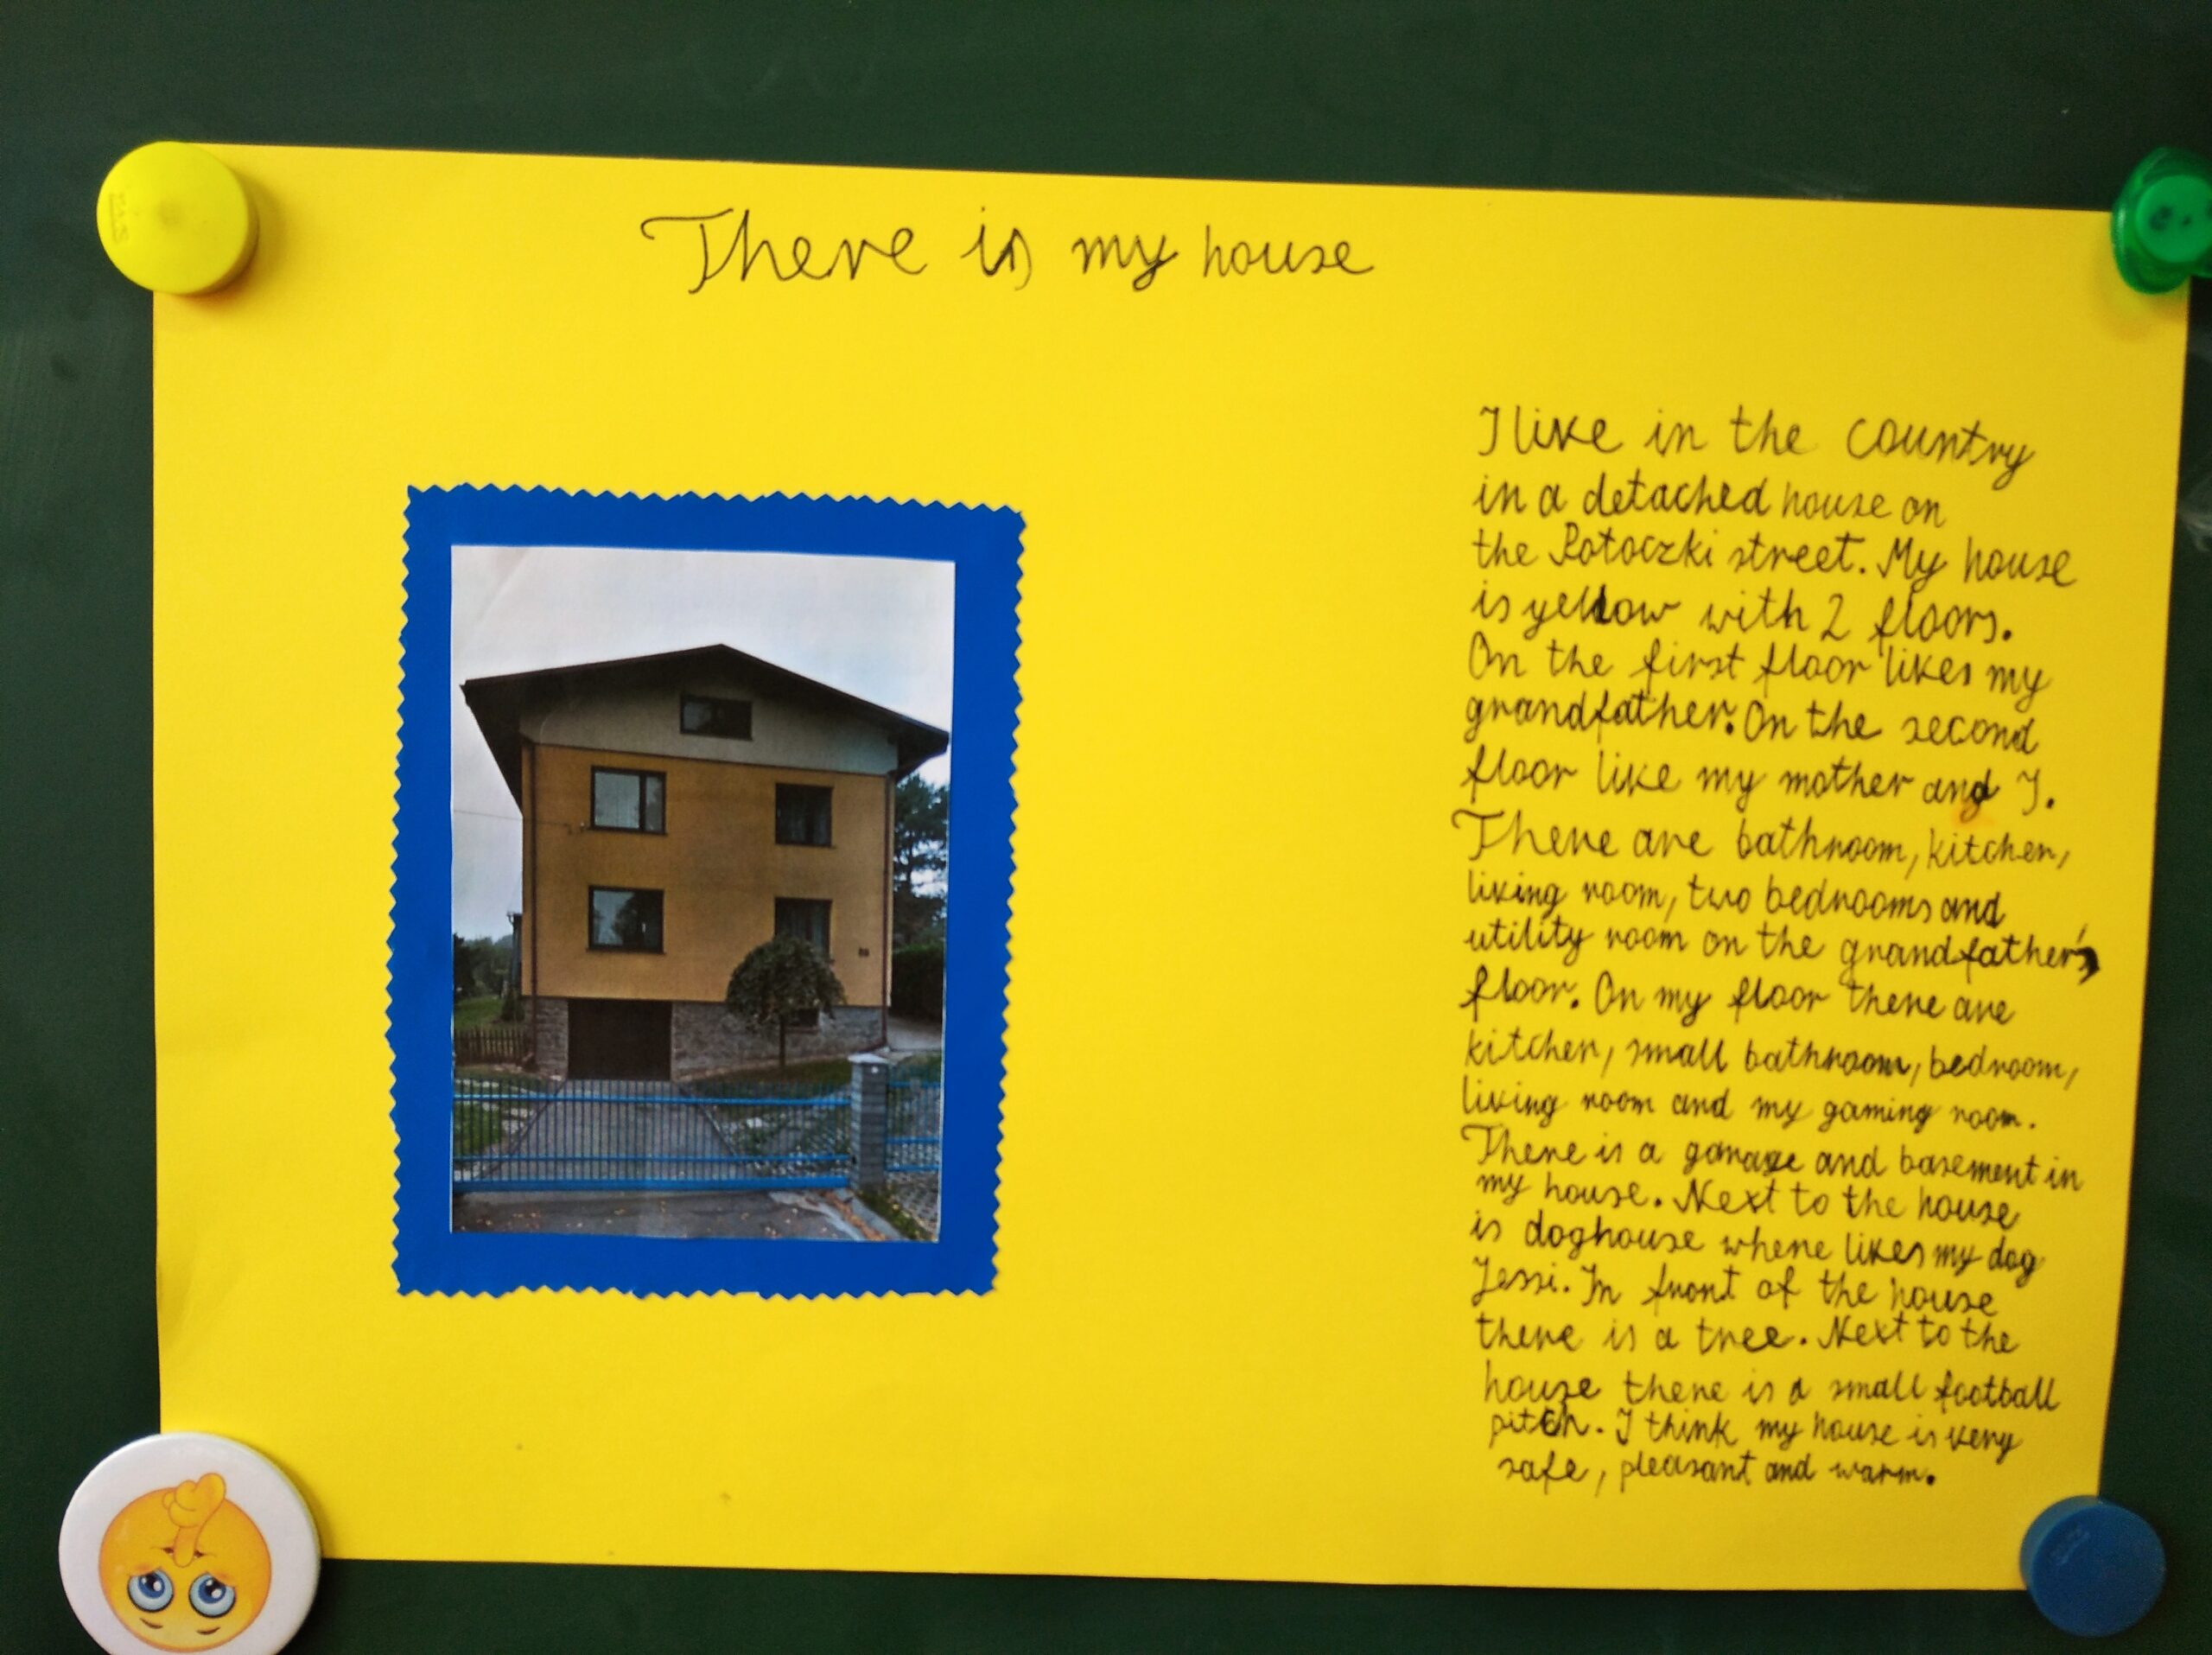 There is my house
I live in the country
in a detached house on
the Potoczki street. My house
is yellow with 2 floors.
On the first floor lives my
grandfather. On the second
floor live my mother and I.
There are bathroom, kitchen,
living room, two bedrooms and
utility room on the grandfather's
floor. On my floor there are
kitchen, small bathroom, bedroom,
living room and my gaming room.
There is a garage and basement in
my house. Next to the house
is doghouse where lives my dog
Jessi. In front of the house
there is a tree. Next to the
house there is a small football
pitch. I think my house is very
safe, pleasant and warm.